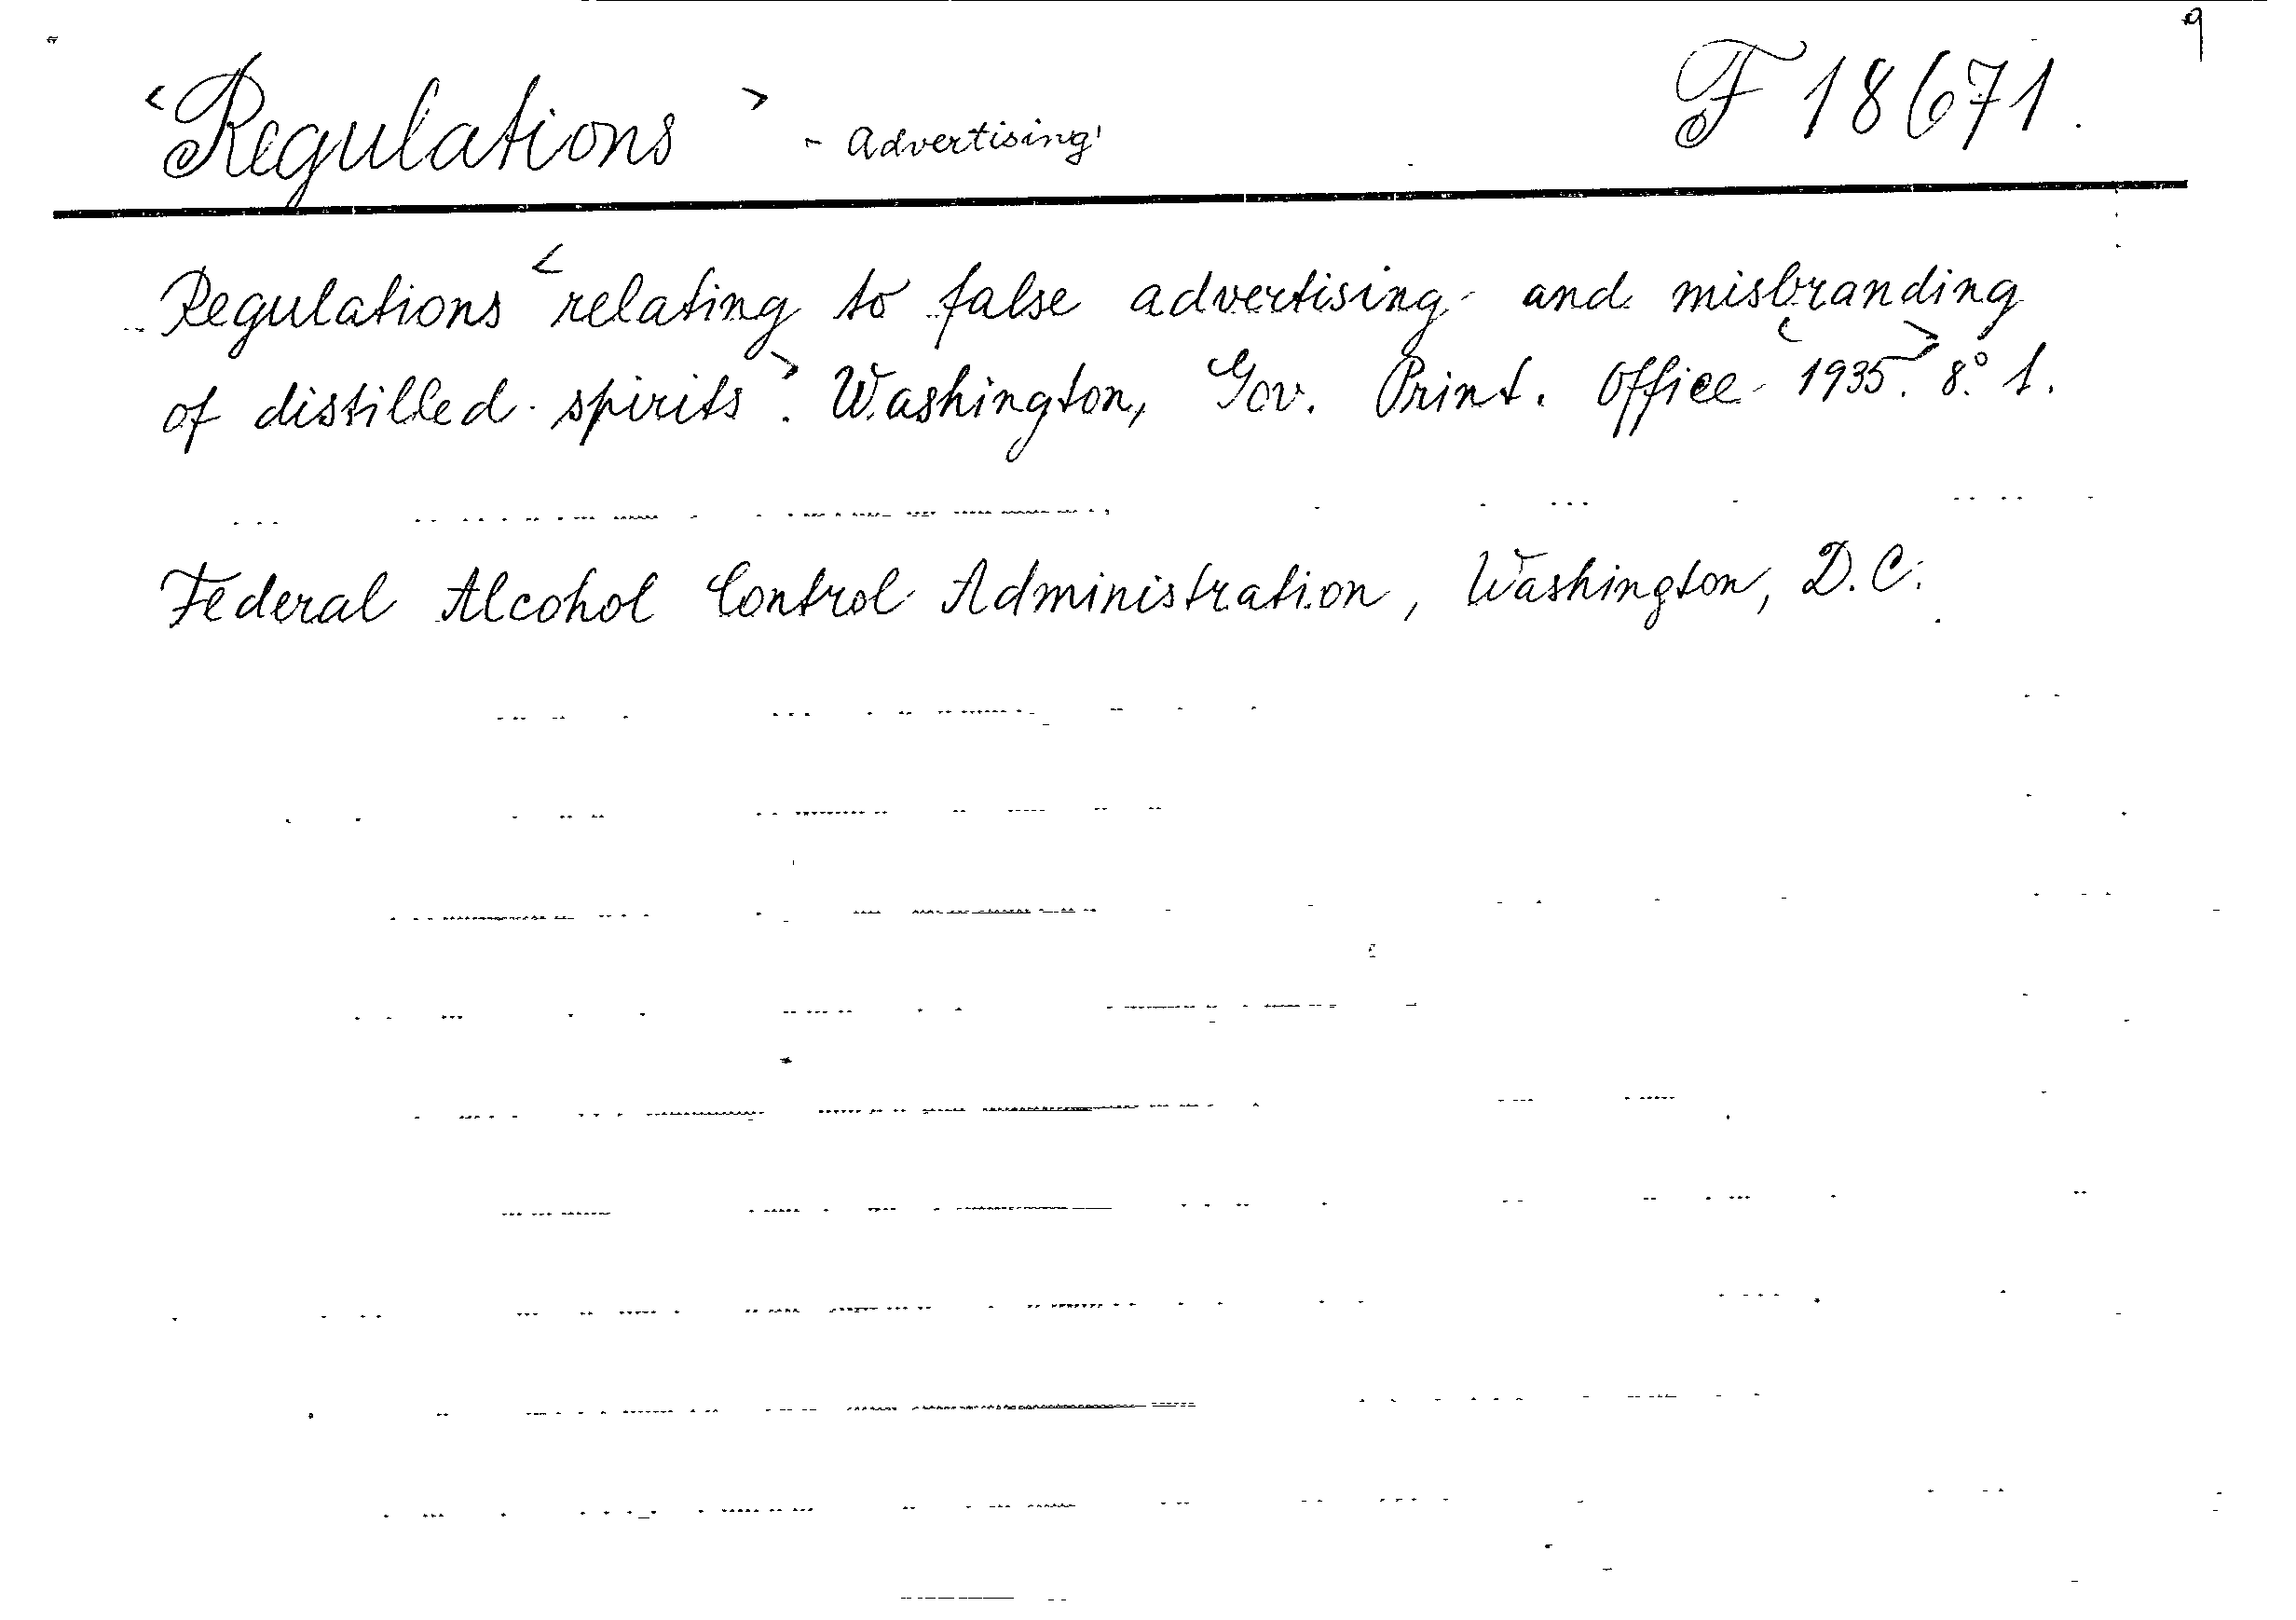 9
<Regulations> - Advertising F 18671.
Regulations <relating to false advertising and misbranding
of distilled spirits>. Washington, Gov. Print. Office <1935>. 8° 1.
Federal Alcohol Control Administration, Washington, D.C.